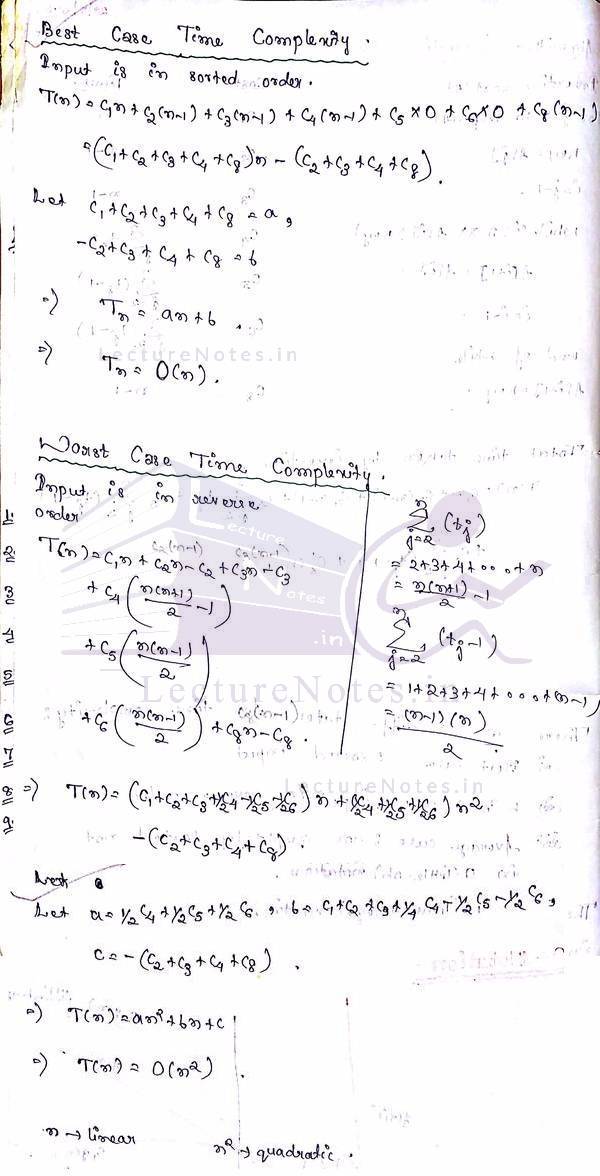 Best Case Time Complexity.
Input is in sorted order.
T(n) = C₁n + C₂(n-1) + C₃(n-1) + C₄(n-1) + C₅ × 0 + C₆ × 0 + C₈(n-1)
= (C₁ + C₂ + C₃ + C₄ + C₈)n - (C₂ + C₃ + C₄ + C₈).
Let C₁ + C₂ + C₃ + C₄ + C₈ = a,
-C₂ + C₃ + C₄ + C₈ = b
=) Tn = an + b.
LectureNotes.in
=) Tn = O(n).
Worst Case Time Complexity.
Input is in reverse
order
C₂(n-1) C₃(n-1)
T(n) = C₁n + C₂n - C₂ + C₃n - C₃
+ C₄ (n(n+1)/2 - 1)
+ C₅ (n(n-1)/2)
C₈(n-1)
+ C₆ (n(n-1)/2) + C₈n - C₈.
n
∑ (tj)
j=2
= 2+3+4+...+n
= n(n+1)/2 - 1
n
∑ (tj-1)
j=2
= 1+2+3+4+...+(n-1)
= (n-1)(n)/2
Lecture
Notes
.in
LectureNotes.in
LectureNotes.in
1
2
3
4
5
6
7
8
9
=) T(n) = (C₁ + C₂ + C₃ + 1/2 C₄ - 1/2 C₅ - 1/2 C₆) n + (1/2 C₄ + 1/2 C₅ + 1/2 C₆) n²
- (C₂ + C₃ + C₄ + C₈).
Let a = 1/2 C₄ + 1/2 C₅ + 1/2 C₆, b = C₁ + C₂ + C₃ + 1/4 C₄ - 1/2 C₅ - 1/2 C₆,
C = -(C₂ + C₃ + C₄ + C₈).
=) T(n) = an² + bn + c
=) T(n) = O(n²).
n → linear n² → quadratic.